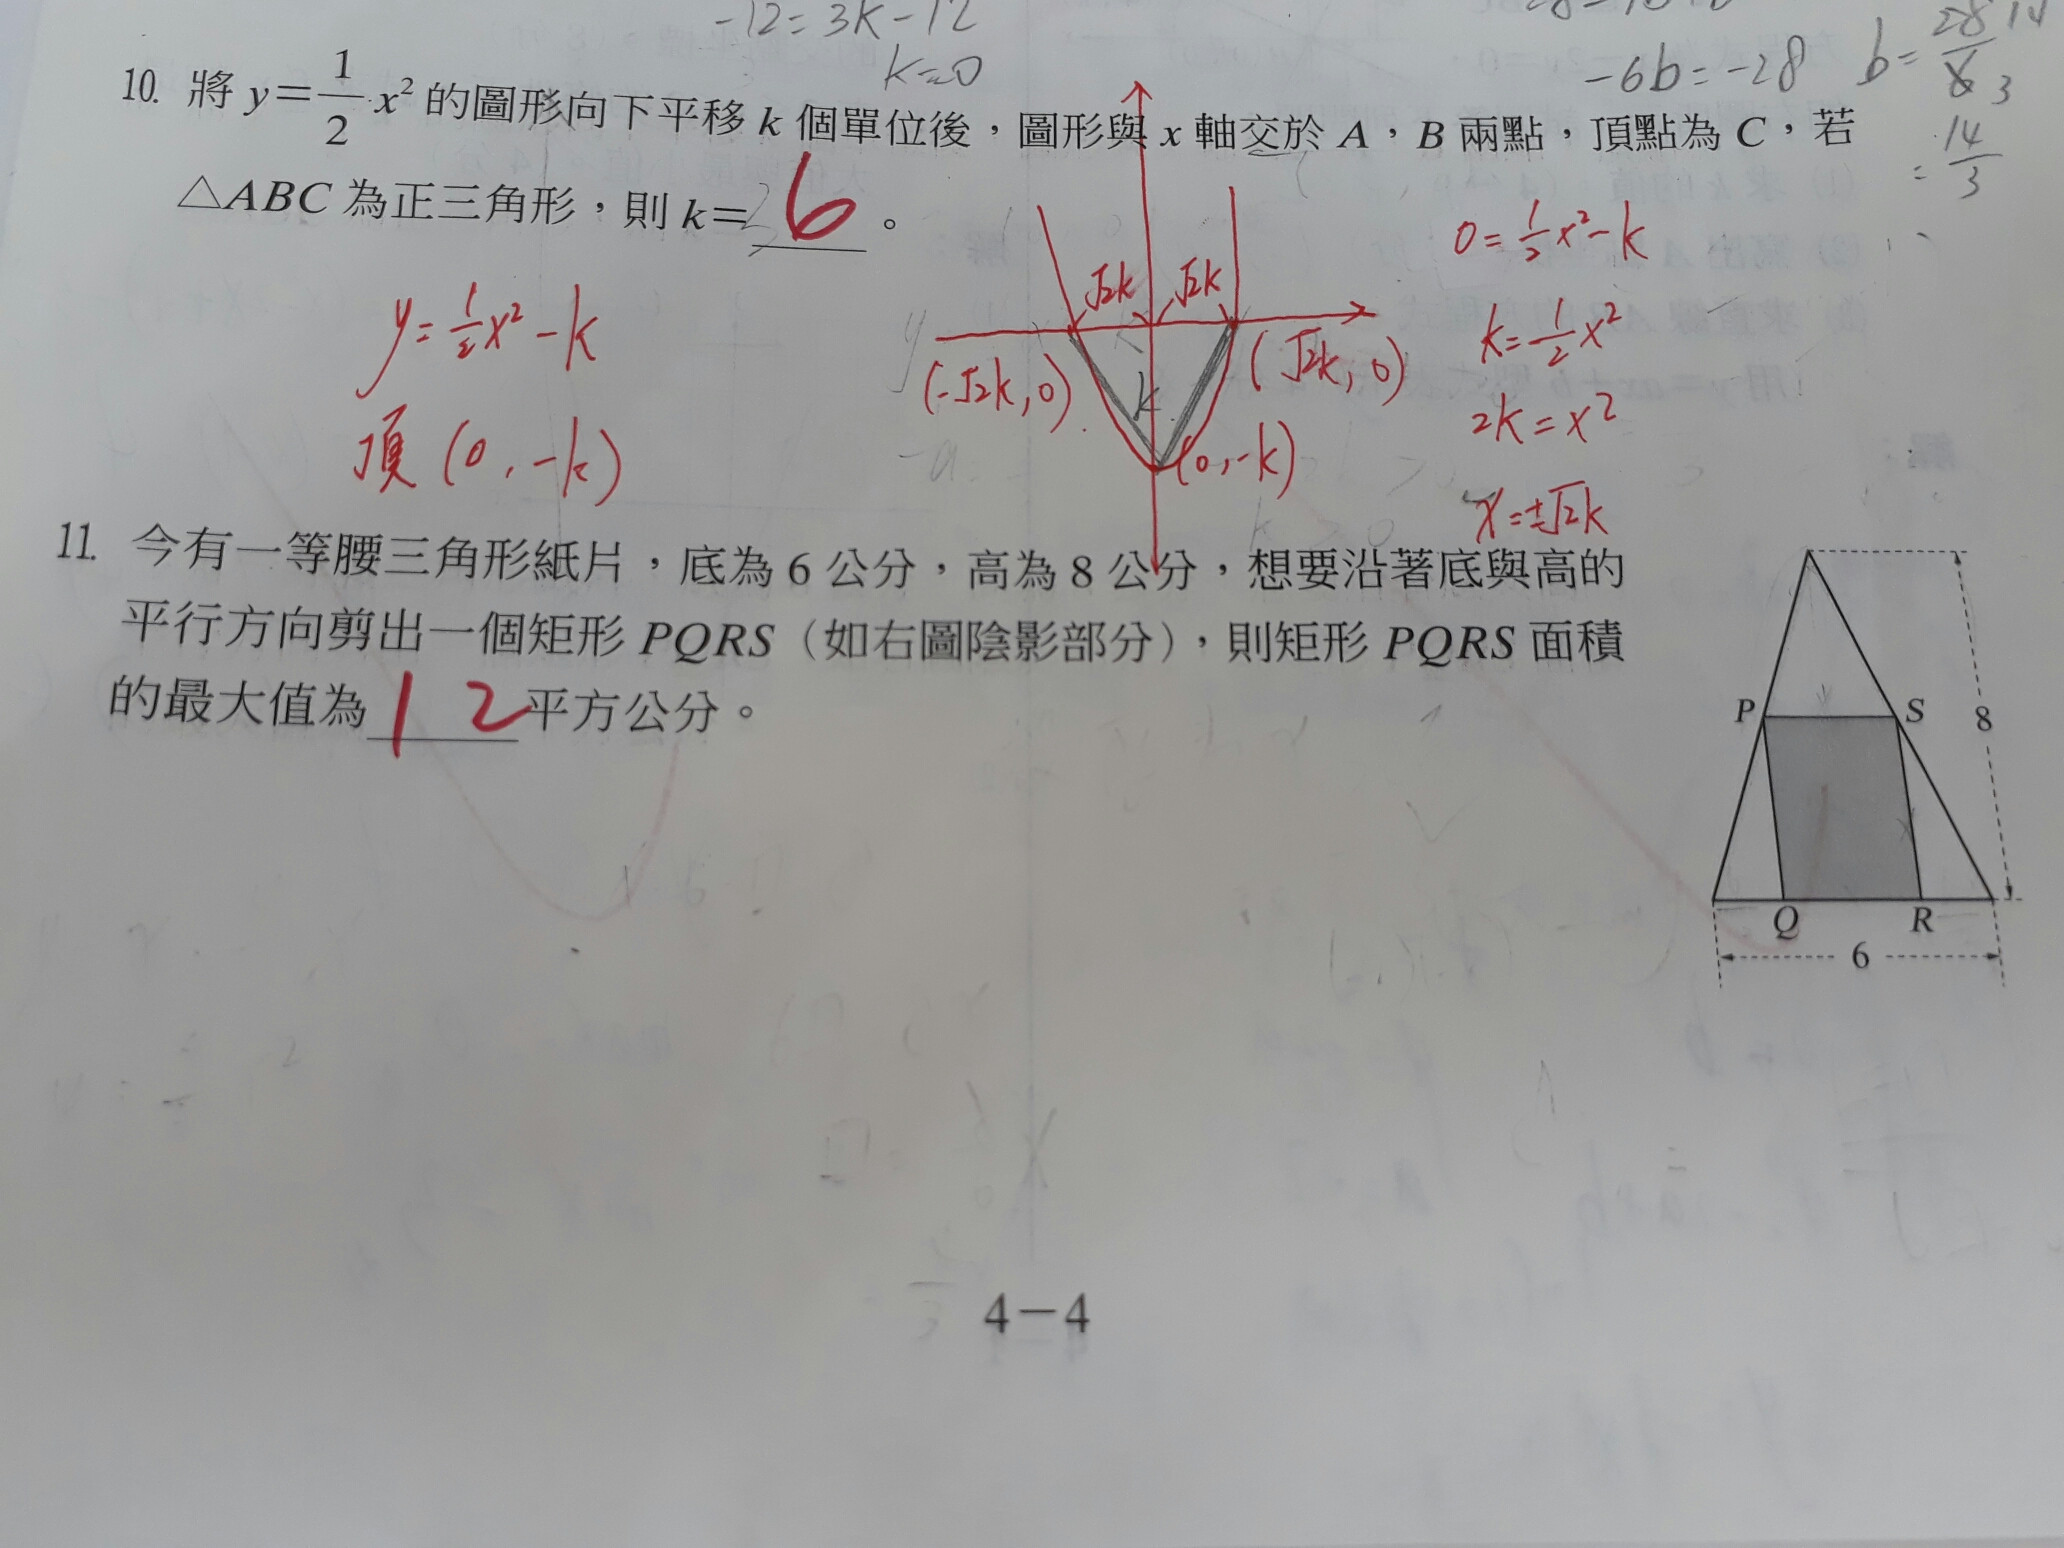 -12=3k-12
k=0
-6b=-28
b=28/6 14 3
=14/3
10. 將 y=1/2 x² 的圖形向下平移 k 個單位後，圖形與 x 軸交於 A，B 兩點，頂點為 C，若
△ABC 為正三角形，則 k= 6 。
y=1/2x²-k
頂 (0,-k)
√2k √2k
(-√2k,0)
(√2k,0)
k
(0,-k)
0=1/2x²-k
k=1/2x²
2k=x²
x=±√2k
11. 今有一等腰三角形紙片，底為 6 公分，高為 8 公分，想要沿著底與高的
平行方向剪出一個矩形 PQRS（如右圖陰影部分），則矩形 PQRS 面積
的最大值為 12 平方公分。
P S 8
Q R
6
4－4